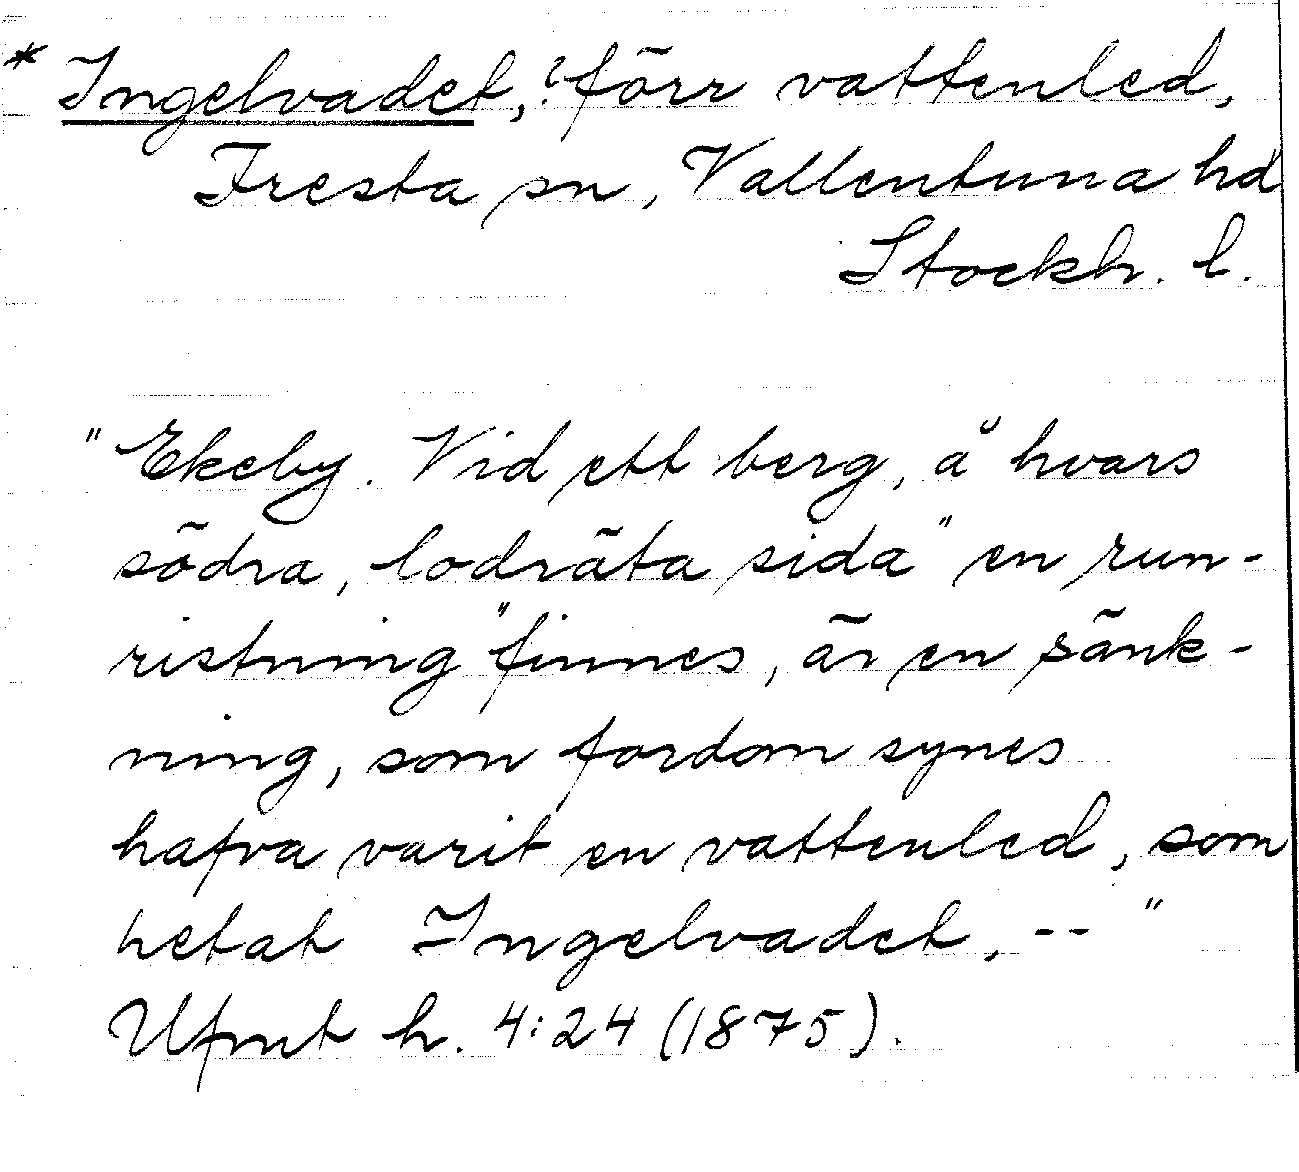 * Ingelvadet, ? förr vattenled,
Fresta sn, Vallentuna hd
Stockh. l.
"Ekeby. Vid ett berg, å hvars
södra, lodräta sida" en run-
ristning "finnes, är en sänk-
ning, som fordom synes
hafva varit en vattenled, som
hetat Ingelvadet. -- "
Ufmt h. 4:24 (1875).